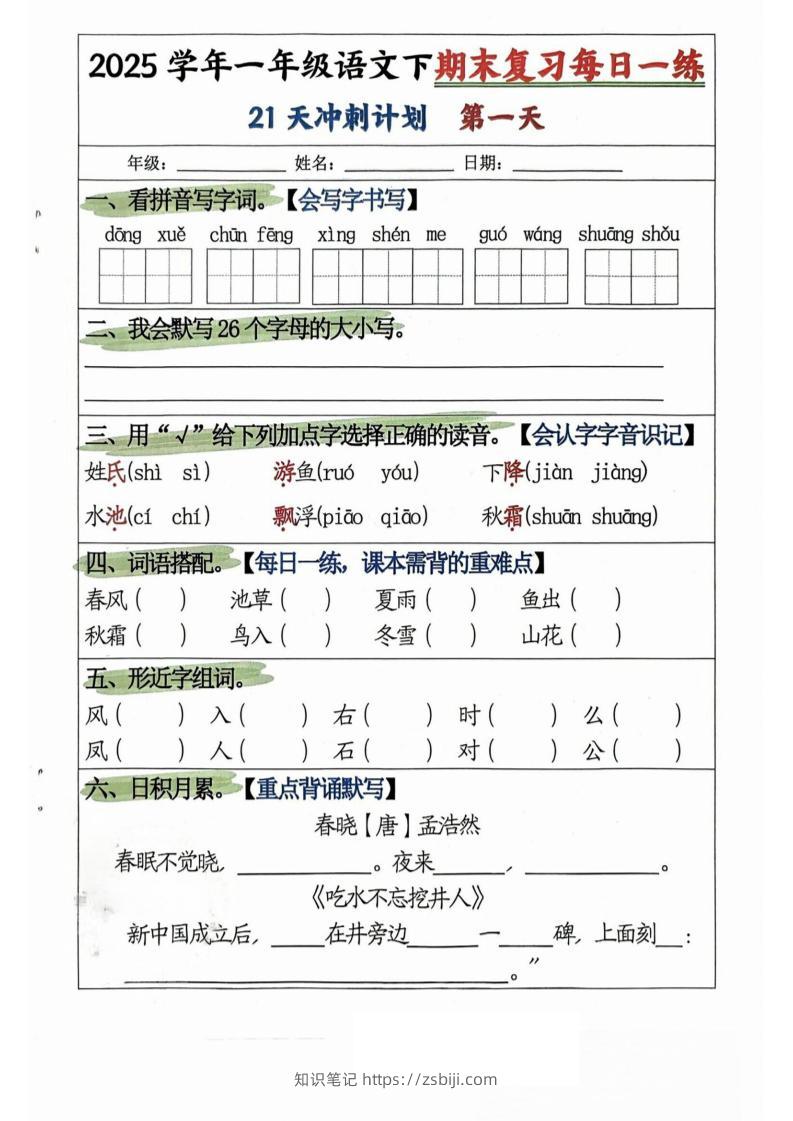 2025 学年一年级语文下期末复习每日一练
21 天冲刺计划 第一天
年级：__________ 姓名：__________ 日期：__________
一、看拼音写字词。【会写字书写】
dōng xuě chūn fēng xìng shén me guó wáng shuāng shǒu
二、我会默写 26 个字母的大小写。
三、用“√”给下列加点字选择正确的读音。【会认字字音识记】
姓氏(shì sì) 游鱼(ruó yóu) 下降(jiàn jiàng)
水池(cí chí) 飘浮(piāo qiāo) 秋霜(shuān shuāng)
四、词语搭配。【每日一练，课本需背的重难点】
春风（ ） 池草（ ） 夏雨（ ） 鱼出（ ）
秋霜（ ） 鸟入（ ） 冬雪（ ） 山花（ ）
五、形近字组词。
风（ ） 入（ ） 右（ ） 时（ ） 么（ ）
凤（ ） 人（ ） 石（ ） 对（ ） 公（ ）
六、日积月累。【重点背诵默写】
春晓【唐】孟浩然
春眠不觉晓，__________。夜来______，__________。
《吃水不忘挖井人》
新中国成立后，____在井旁边_____一____碑，上面刻__：
______________________________。”
知识笔记 https://zsbiji.com